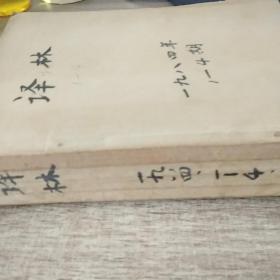 译林
一九八四年
1—4期
译林
一九八四、1—4.